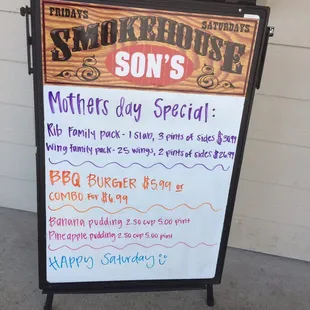 FRIDAYS
SATURDAYS
SMOKEHOUSE
SON'S
Mothers day Special:
Rib Family pack - 1 slab, 3 pints of sides $38.99
Wing family pack - 25 wings, 2 pints of sides $26.99
BBQ BURGER $5.99 or
COMBO for $6.99
Banana pudding 2.50 cup 5.00 pint
Pineapple pudding 2.50 cup 5.00 pint
HAPPY Saturday